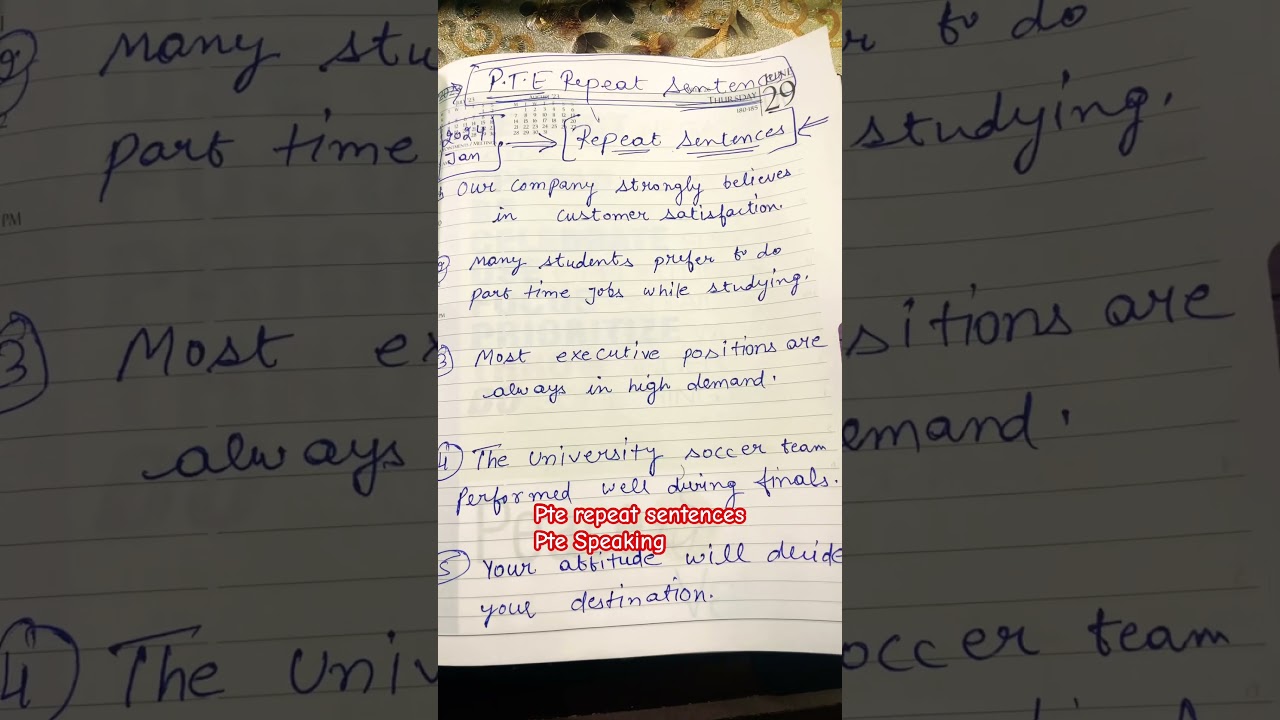 P.T.E Repeat Senten
JUNE
THURSDAY
29
180-185
2024
Jan
Repeat Sentences
Our company strongly believes
in customer satisfaction.
2 Many students prefer to do
part time jobs while studying.
3 Most executive positions are
always in high demand.
4 The University soccer team
performed well during finals.
Pte repeat sentences
Pte Speaking
5 Your attitude will decide
your destination.